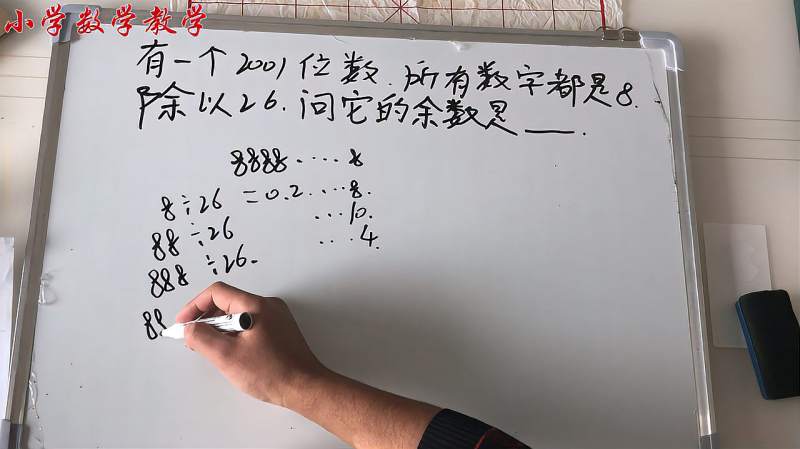 小学数学教学
有一个2001位数.所有数字都是8.
除以26.问它的余数是___.
8888....8
8÷26=0.2...8.
88÷26 ...10.
888÷26. ...4.
88